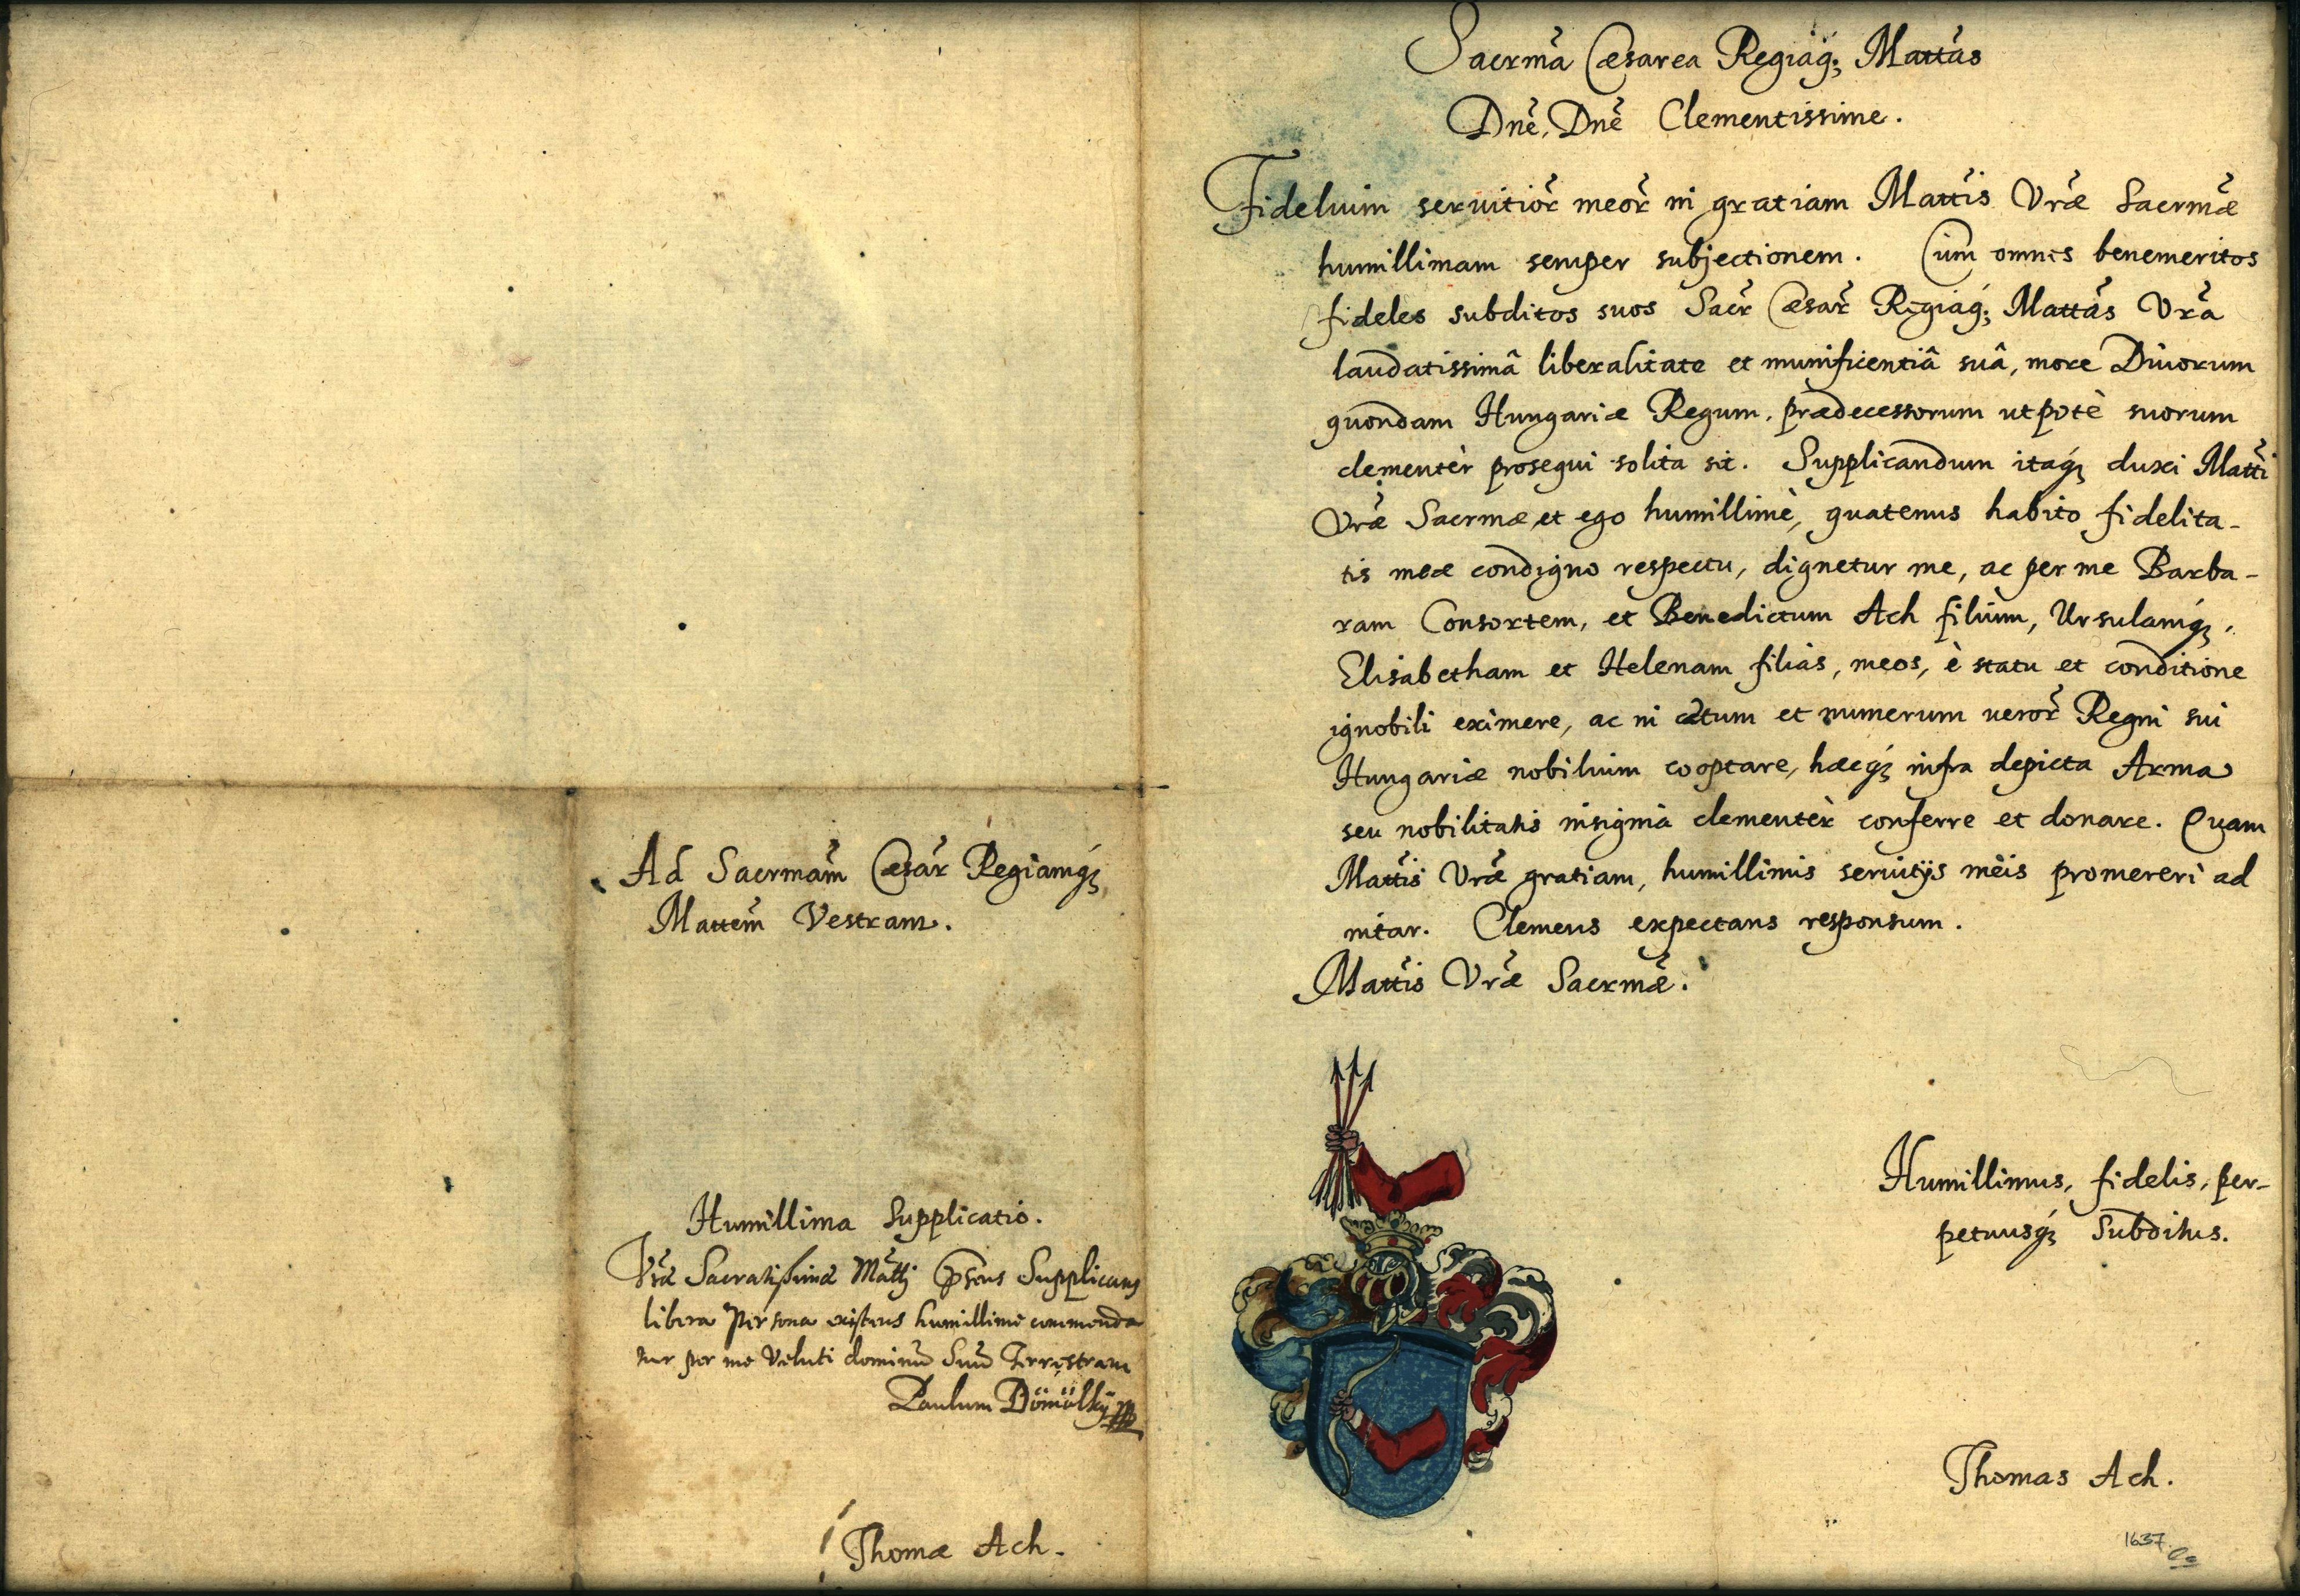 Ad Sacrmam Cæsar Regiamq;
Mattem Vestram.
Humillima Supplicatio.
Vræ Sacratissimæ Matti Supplicans
libera Persona existens humillime commenda
tur per me veluti dominu Suu Terrestram
Paulum Dömölky
Thomæ Ach.
Sacrma Cæsarea Regiaq; Mattas
Dne, Dne Clementissime.
Fidelium seruitior meor in gratiam Mattis Vræ Sacrmæ
humillimam semper subjectionem. Cum omnes benemeritos
fideles subditos suos Sacr Cæsar Regiaq; Mattas Vra
laudatissimâ liberalitate et munificentiâ suâ, more Diuorum
quondam Hungariæ Regum, prædecessorum utpotè suorum
clementèr prosequi solita sit. Supplicandum itaq; duxi Matti
Vræ Sacrmæ, et ego humillimè, quatenus habito fidelita-
tis meæ condigno respectu, dignetur me, ac per me Barba-
ram Consortem, et Benedictum Ach filium, Ursulamq;,
Elisabetham et Helenam filias, meos, è statu et conditione
ignobili eximere, ac in cætum et numerum ueror Regni sui
Hungariæ nobilium cooptare, hæcq; infra depicta Arma
seu nobilitatis insignia clementèr conferre et donare. Quam
Mattis Vræ gratiam, humillimis seruitijs meis promereri ad
nitar. Clemens expectans responsum.
Mattis Vræ Sacrmæ.
Humillimus, fidelis, per-
petuusq; Subditus.
Thomas Ach.
1637